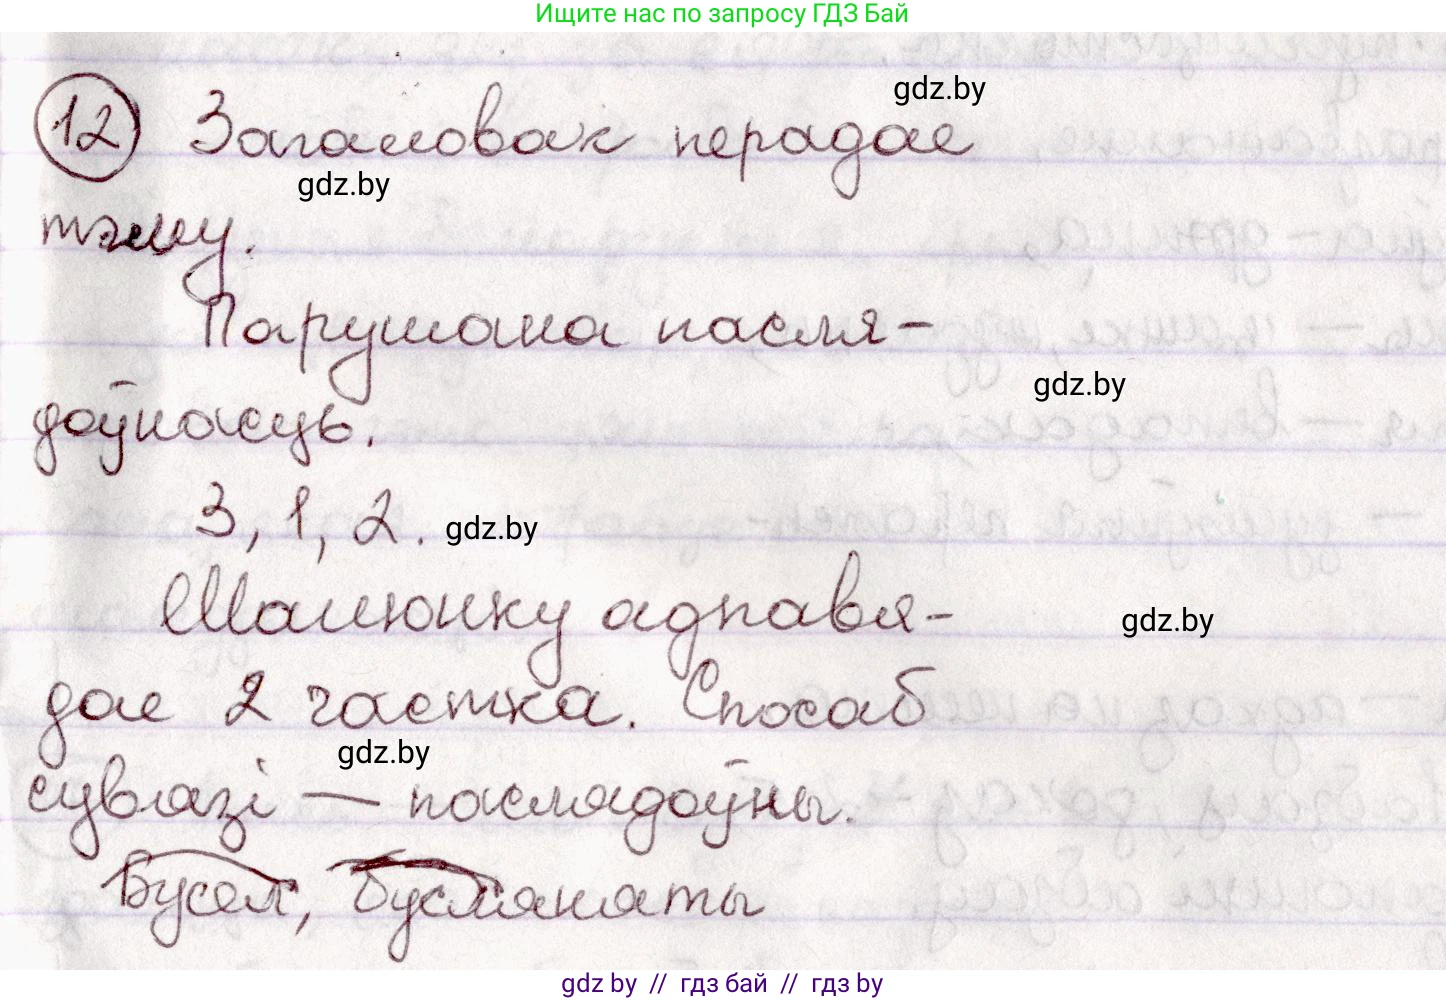 Ищите нас по запросу ГДЗ Бай
12 Загаловак перадае
gdz.by
gdz.by
тэму.
Парушана насля-
gdz.by
доўнасць.
3, 1, 2. gdz.by
Малюнку адпавя-
gdz.by
дае 2 частка. Спосаб
gdz.by
сувязі — паслядоўны.
Бусел, бусляняты
gdz by // гдз бай // гдз by